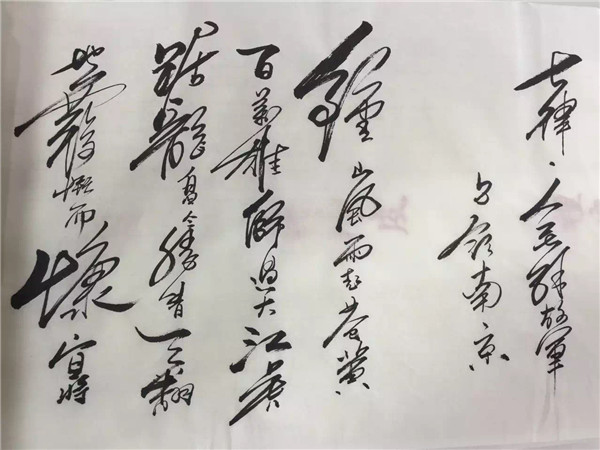 七律·人民解放军
占领南京
鍾山風雨起苍黄
百萬雄師過大江虎
踞龍盘今勝昔天翻
地覆慨而慷宜将